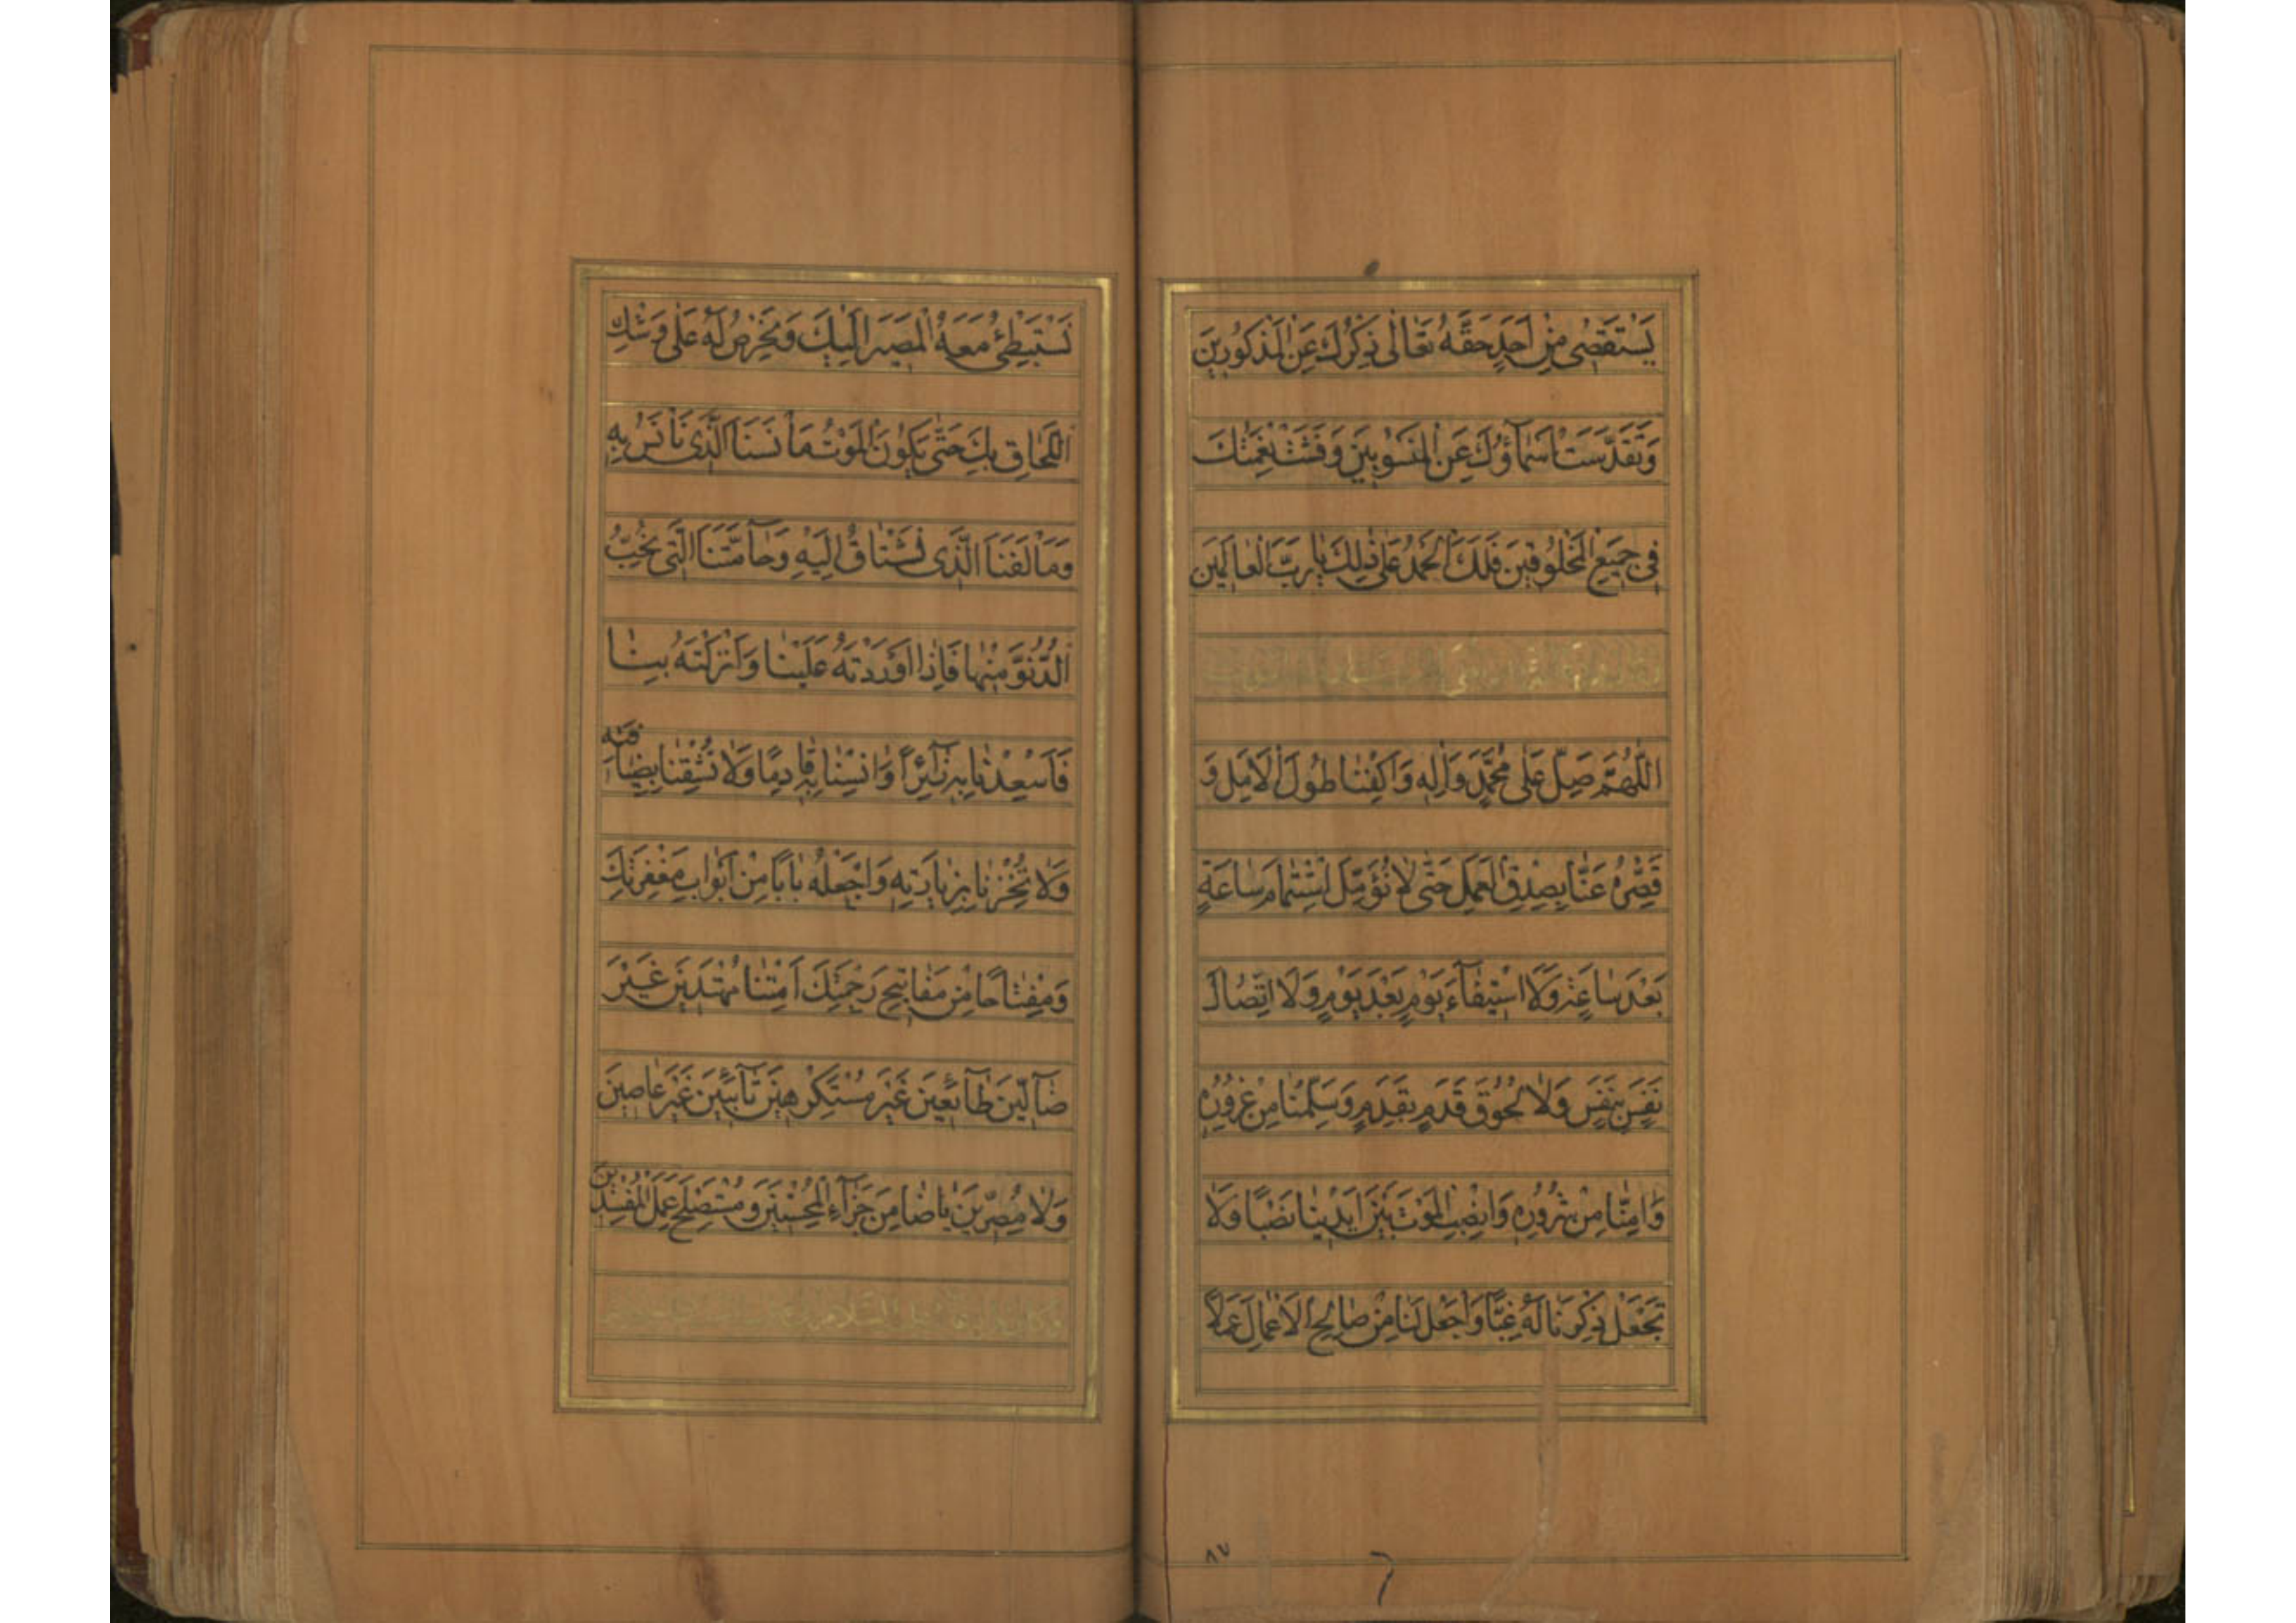 يَسْتَقْصِى مِنْ اَحَدٍ حَقَّهُ تَعَالٰى ذِكْرُكَ عَنِ الْمَذْكُورِينَ
وَتَقَدَّسَتْ اَسْمَآؤُكَ عَنِ الْمَنْسُوبِينَ وَفَشَتْ نِعْمَتُكَ
فِى جَمِيعِ الْمَخْلُوقِينَ فَلَكَ الْحَمْدُ عَلٰى ذٰلِكَ يٰا رَبَّ الْعٰالَمِينَ
اَللّٰهُمَّ صَلِّ عَلٰى مُحَمَّدٍ وَاٰلِهِ وَاكْفِنٰا طُولَ الْاَمَلِ وَ
قَصِّرْهُ عَنّٰا بِصِدْقِ الْعَمَلِ حَتّٰى لٰا نُؤَمِّلَ اسْتِتْمٰامَ سٰاعَةٍ
بَعْدَ سٰاعَةٍ وَلَا اسْتِيفٰآءَ يَوْمٍ بَعْدَ يَوْمٍ وَلَا اتِّصٰالَ
نَفَسٍ بِنَفَسٍ وَلٰا لُحُوقَ قَدَمٍ بِقَدَمٍ وَسَلِّمْنٰا مِنْ غُرُورِهِ
وَاٰمِنّٰا مِنْ شُرُورِهِ وَانْصِبِ الْمَوْتَ بَيْنَ اَيْدِينٰا نَصْبًا وَلٰا
تَجْعَلْ ذِكْرَنٰا لَهُ غِبًّا وَاجْعَلْ لَنٰا مِنْ صٰالِحِ الْاَعْمٰالِ عَمَلًا
نَسْتَبْطِئُ مَعَهُ الْمَصِيرَ اِلَيْكَ وَنَحْرِصُ لَهُ عَلٰى وَشْكِ
اللَّحٰاقِ بِكَ حَتّٰى يَكُونَ الْمَوْتُ مَأْنَسَنَا الَّذِى نَأْنَسُ بِهِ
وَمَأْلَفَنَا الَّذِى نَشْتٰاقُ اِلَيْهِ وَحٰآمَّتَنَا الَّتِى نُحِبُّ
الدُّنُوَّ مِنْهٰا فَاِذٰا اَوْرَدْتَهُ عَلَيْنٰا وَاَنْزَلْتَهُ بِنٰا
فَاَسْعِدْنٰا بِهِ زٰآئِرًا وَاٰنِسْنٰا بِهِ قٰادِمًا وَلٰا تُشْقِنٰا بِضِيٰافَتِهِ
وَلٰا تُخْزِنٰا بِزِيٰارَتِهِ وَاجْعَلْهُ بٰابًا مِنْ اَبْوٰابِ مَغْفِرَتِكَ
وَمِفْتٰاحًا مِنْ مَفٰاتِيحِ رَحْمَتِكَ اَمِتْنٰا مُهْتَدِينَ غَيْرَ
ضٰآلِّينَ طٰآئِعِينَ غَيْرَ مُسْتَكْرِهِينَ تٰآئِبِينَ غَيْرَ عٰاصِينَ
وَلٰا مُصِرِّينَ يٰا ضٰامِنَ جَزٰآءِ الْمُحْسِنِينَ وَمُسْتَصْلِحَ عَمَلِ الْمُفْسِدِينَ
٨٧